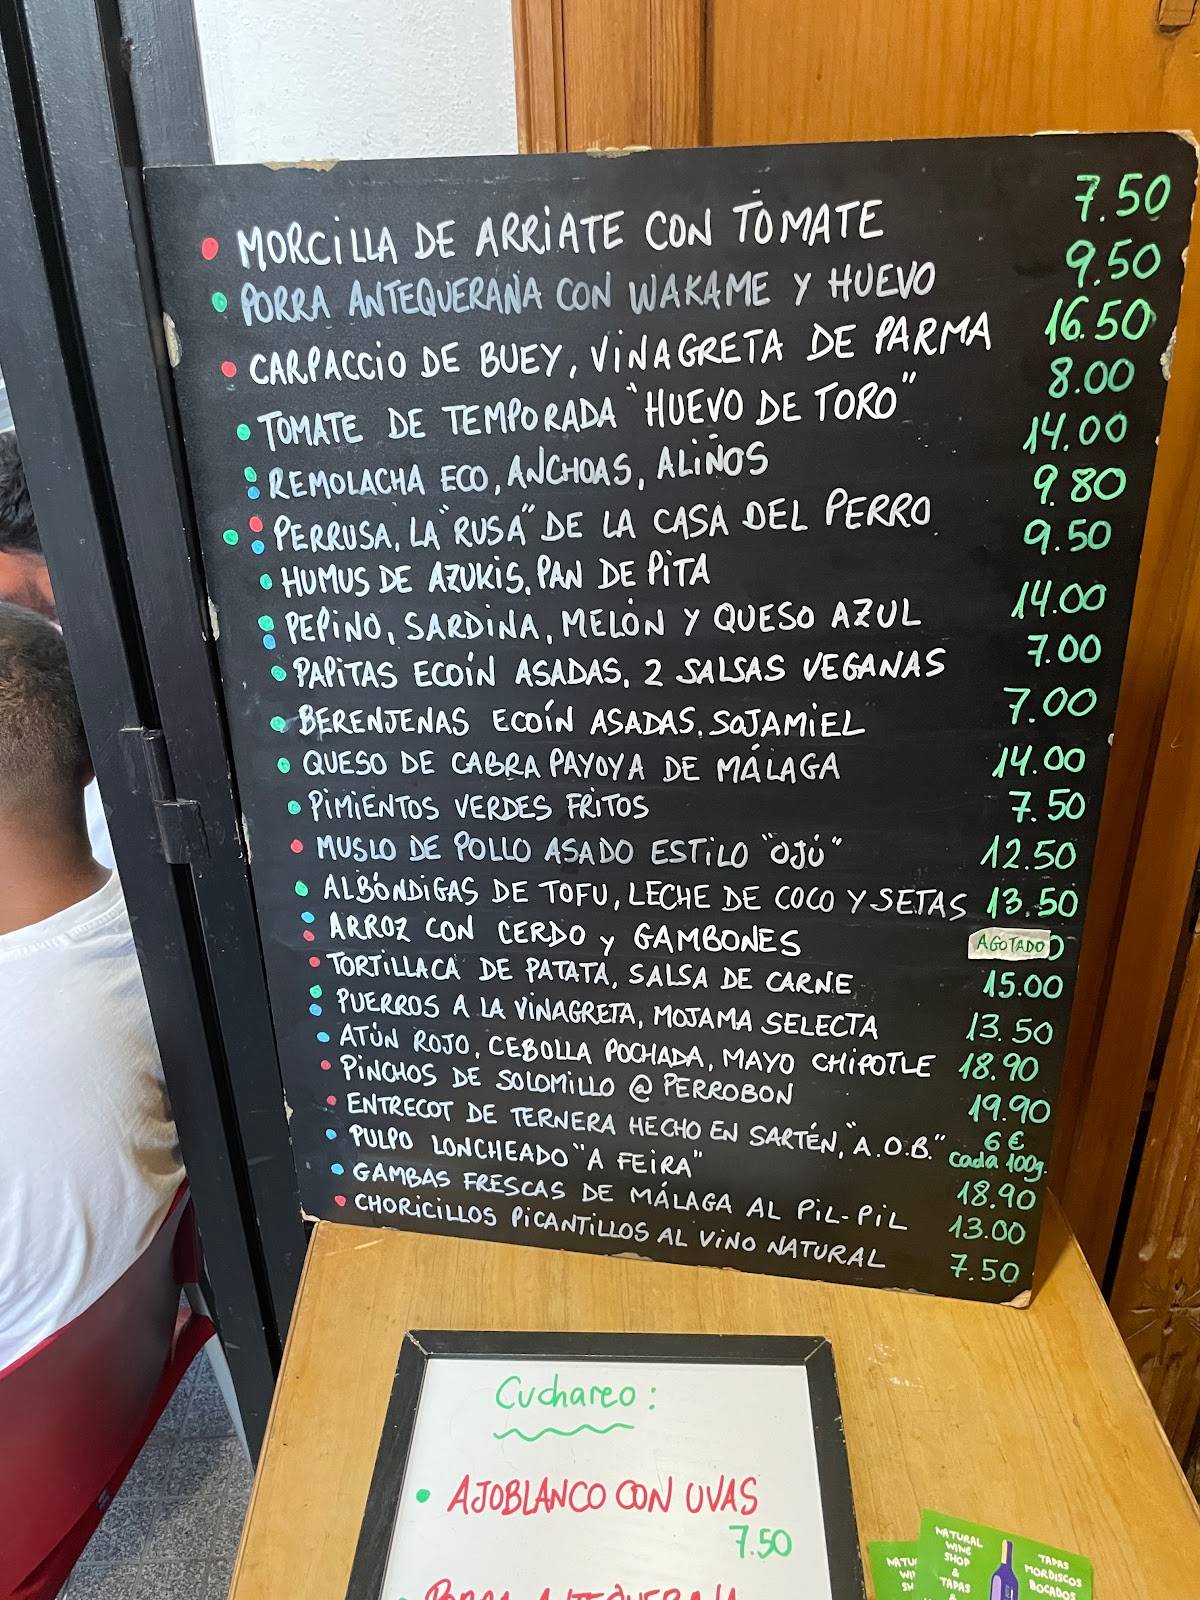 MORCILLA DE ARRIATE CON TOMATE 7.50
PORRA ANTEQUERANA CON WAKAME Y HUEVO 9.50
CARPACCIO DE BUEY, VINAGRETA DE PARMA 16.50
TOMATE DE TEMPORADA "HUEVO DE TORO" 8.00
REMOLACHA ECO, ANCHOAS, ALIÑOS 14.00
PERRUSA, LA "RUSA" DE LA CASA DEL PERRO 9.80
HUMUS DE AZUKIS, PAN DE PITA 9.50
PEPINO, SARDINA, MELÓN Y QUESO AZUL 14.00
PAPITAS ECOÍN ASADAS, 2 SALSAS VEGANAS 7.00
BERENJENAS ECOÍN ASADAS, SOJAMIEL 7.00
QUESO DE CABRA PAYOYA DE MÁLAGA 14.00
PIMIENTOS VERDES FRITOS 7.50
MUSLO DE POLLO ASADO ESTILO "OJÚ" 12.50
ALBÓNDIGAS DE TOFU, LECHE DE COCO Y SETAS 13.50
ARROZ CON CERDO y GAMBONES AGOTADO
TORTILLACA DE PATATA, SALSA DE CARNE 15.00
PUERROS A LA VINAGRETA, MOJAMA SELECTA 13.50
ATÚN ROJO, CEBOLLA POCHADA, MAYO CHIPOTLE 18.90
PINCHOS DE SOLOMILLO @ PERROBON 19.90
ENTRECOT DE TERNERA HECHO EN SARTÉN, "A.O.B." 6 €
cada 100g.
PULPO LONCHEADO "A FEIRA" 18.90
GAMBAS FRESCAS DE MÁLAGA AL PIL-PIL 13.00
CHORICILLOS PICANTILLOS AL VINO NATURAL 7.50
Cuchareo:
AJOBLANCO CON UVAS
7.50
PORRA ANTEQUERANA
NATURAL
WINE
SHOP
&
TAPAS
TAPAS
MORDISCOS
BOCADOS